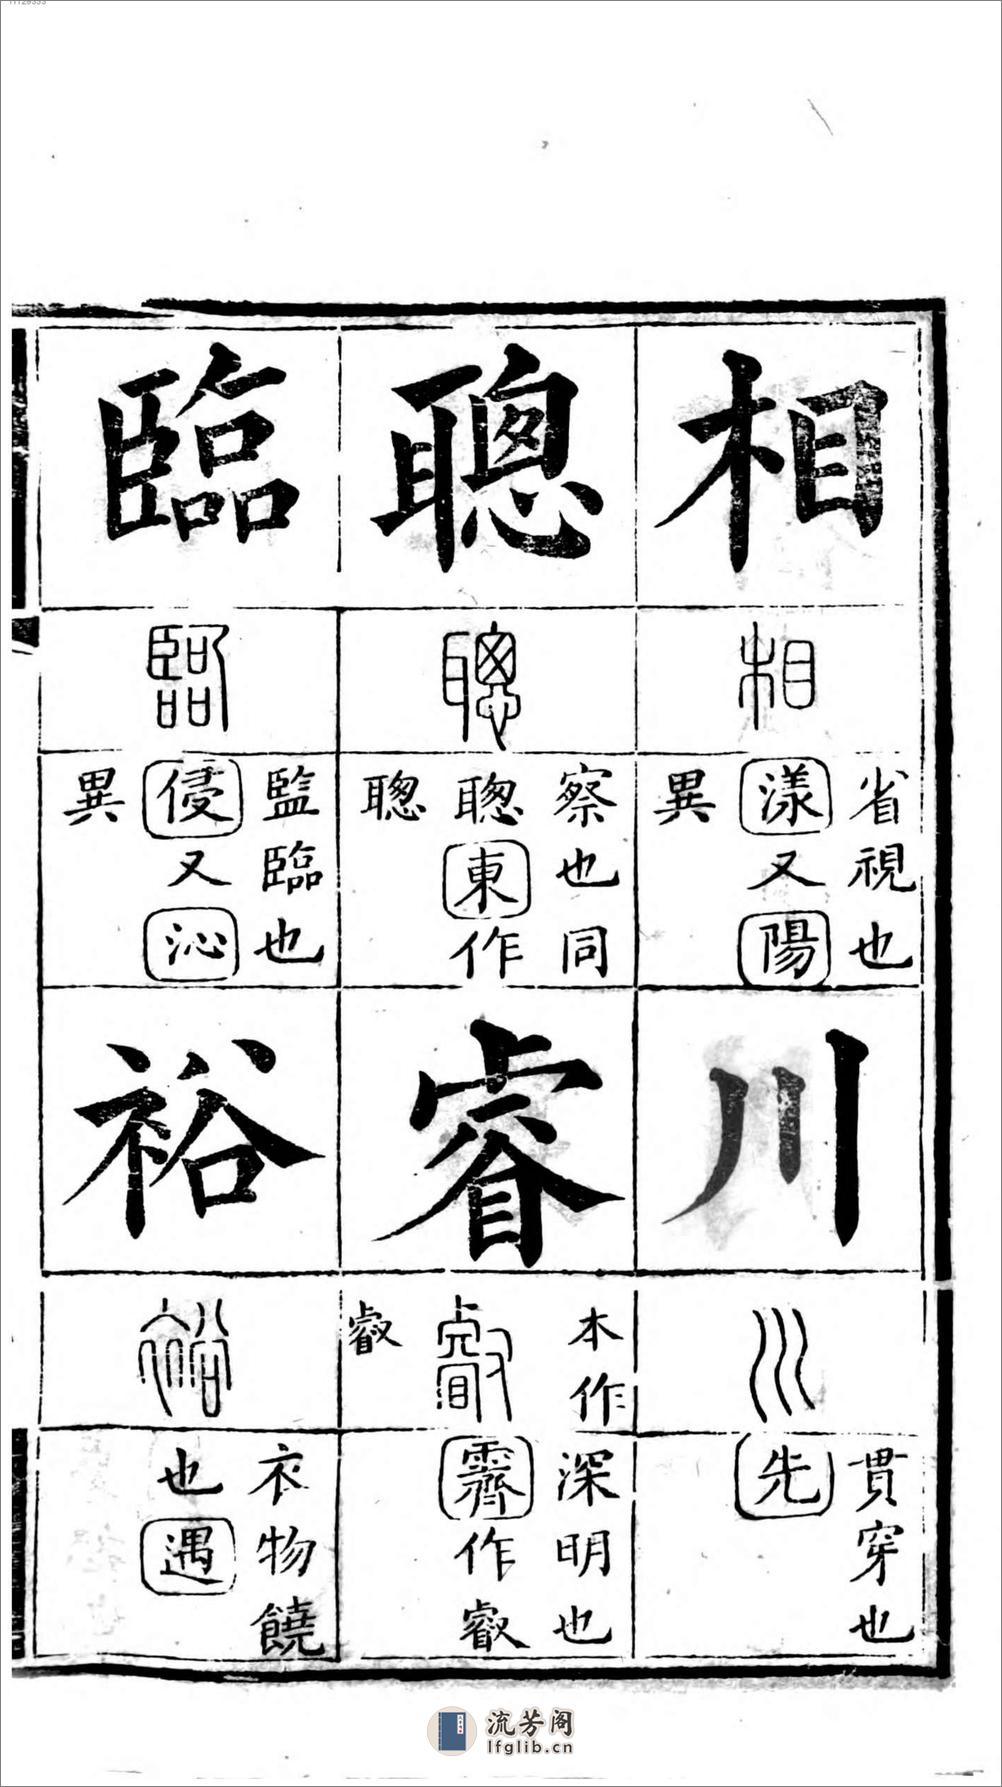 相
相
省視也
漾又陽
異
川
川
貫穿也
先
聰
聰
察也同
聦東作
聰
睿
本作
叡
叡
深明也
霽作叡
臨
臨
監臨也
侵又沁
異
裕
裕
衣物饒
也遇
流芳阁
lfglib.cn